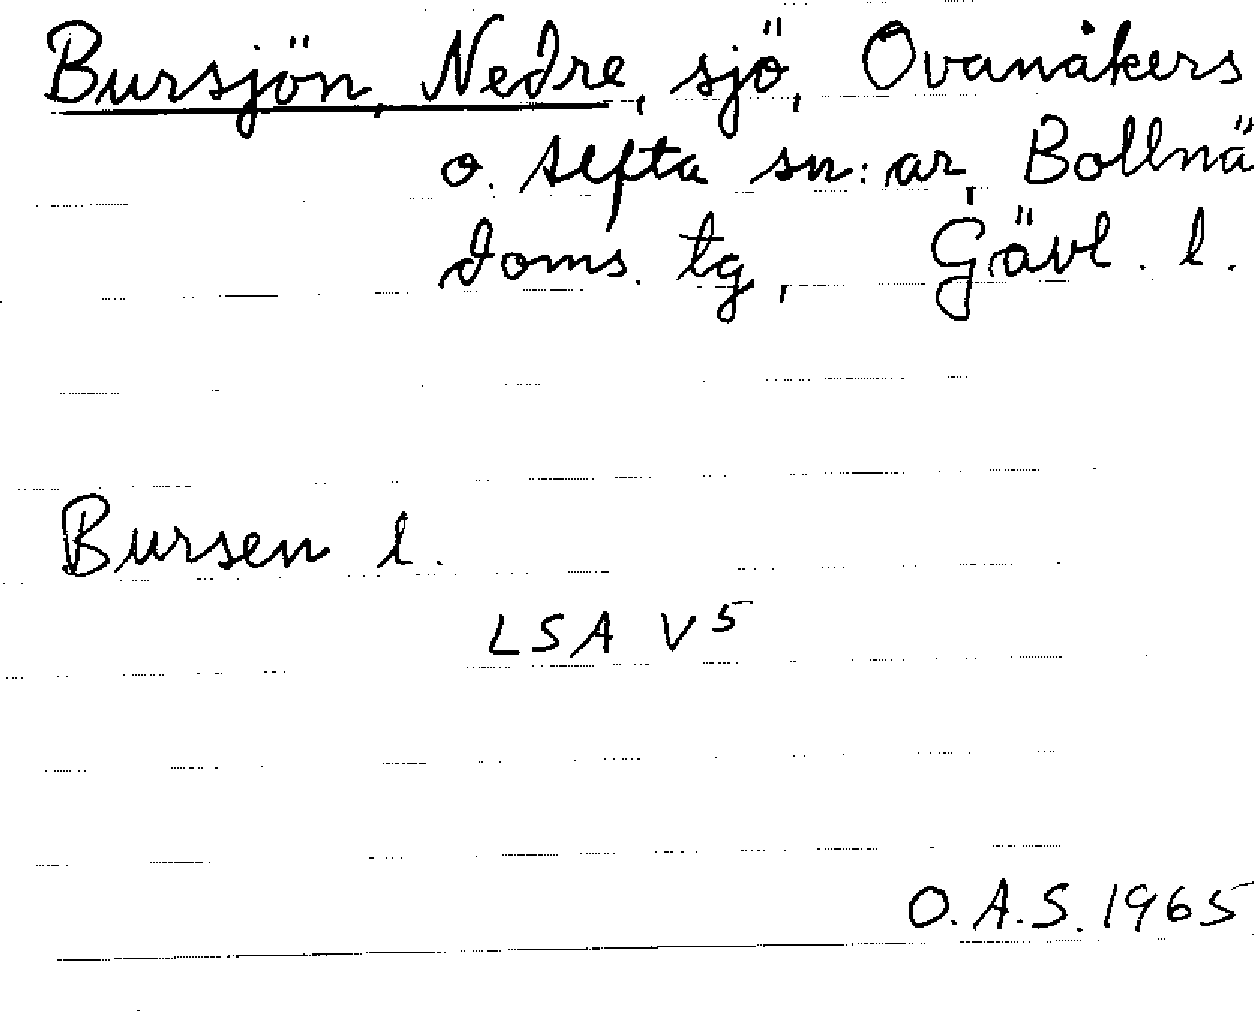 Bursjön, Nedre, sjö, Ovanåkers
o. Alfta sn:ar, Bollnä
doms. tg, Gävl. l.
Bursen l.
LSA V5
O.A.S. 1965